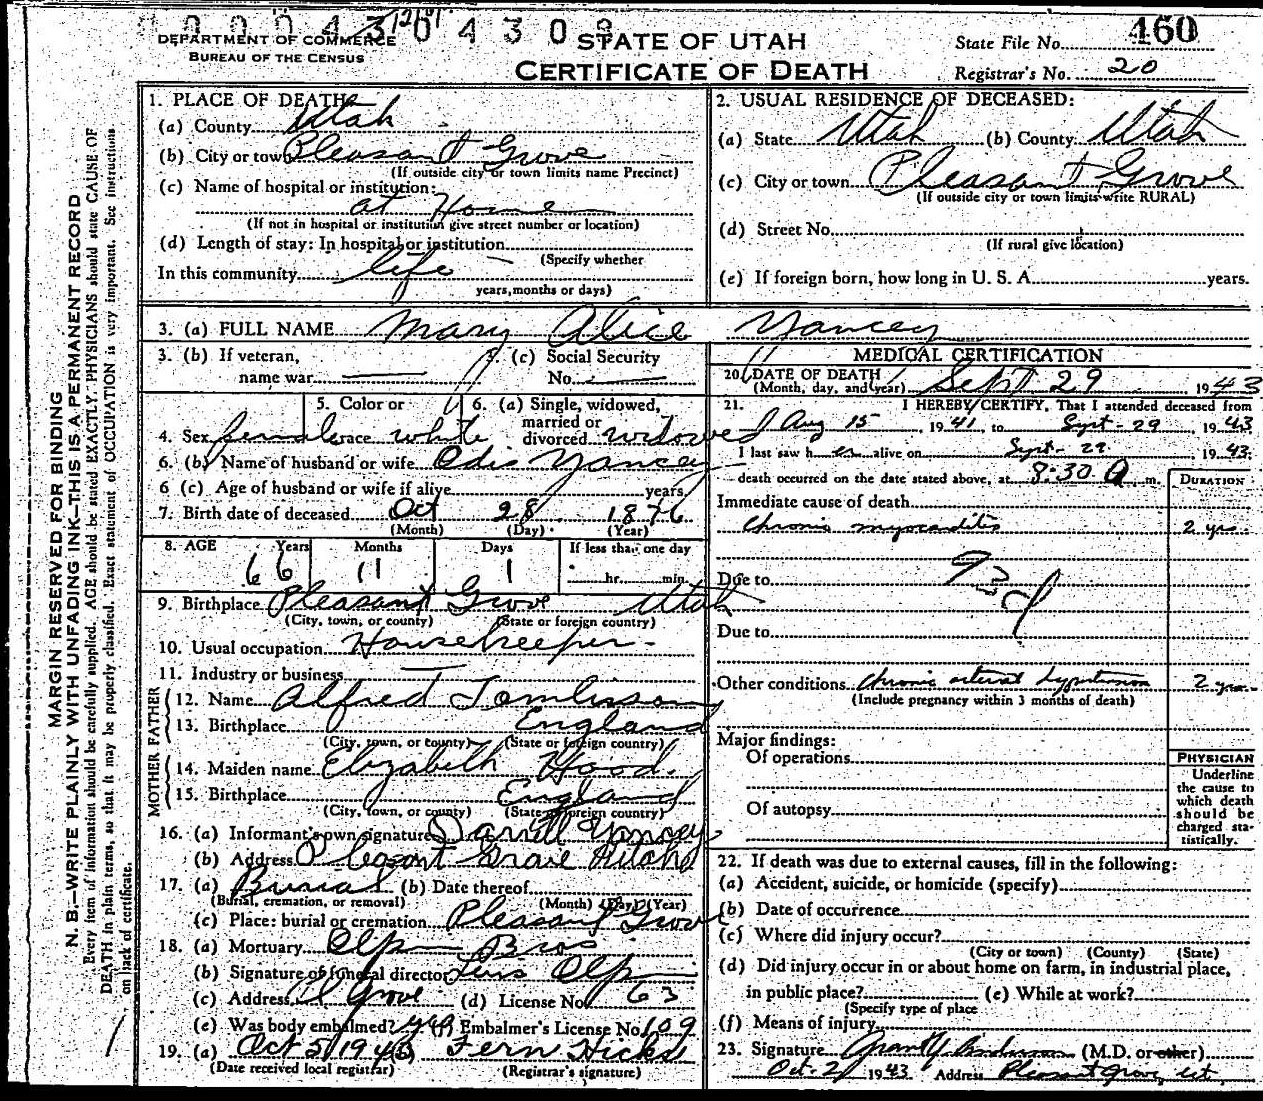 DEPARTMENT OF COMMERCE
BUREAU OF THE CENSUS
STATE OF UTAH
CERTIFICATE OF DEATH
State File No. 460
Registrar's No. 20
MARGIN RESERVED FOR BINDING
N. B.—WRITE PLAINLY WITH UNFADING INK—THIS IS A PERMANENT RECORD
Every item of information should be carefully supplied. AGE should be stated EXACTLY. PHYSICIANS should state CAUSE OF
DEATH in plain terms, so that it may be properly classified. Exact statement of OCCUPATION is very important. See instructions
on back of certificate.
1. PLACE OF DEATH
(a) County Utah
(b) City or town Pleasant Grove
(If outside city or town limits name Precinct)
(c) Name of hospital or institution:
at Home
(If not in hospital or institution give street number or location)
(d) Length of stay: In hospital or institution
(Specify whether
In this community life
years, months or days)
2. USUAL RESIDENCE OF DECEASED:
(a) State Utah (b) County Utah
(c) City or town Pleasant Grove
(If outside city or town limits write RURAL)
(d) Street No.
(If rural give location)
(e) If foreign born, how long in U. S. A. years.
3. (a) FULL NAME Mary Alice Yancey
3. (b) If veteran,
name war
3. (c) Social Security
No.
4. Sex female
5. Color or
race white
6. (a) Single, widowed,
married or
divorced widowed
6. (b) Name of husband or wife Odis Yancey
6 (c) Age of husband or wife if alive years
7. Birth date of deceased Oct 28 1876
(Month) (Day) (Year)
8. AGE Years Months Days If less than one day
66 11 1 hr. min.
9. Birthplace Pleasant Grove Utah
(City, town, or county) (State or foreign country)
10. Usual occupation Housekeeper
11. Industry or business
FATHER
12. Name Alfred Tomlisson
13. Birthplace England
(City, town, or county) (State or foreign country)
MOTHER
14. Maiden name Elizabeth Hood
15. Birthplace England
(City, town, or county) (State or foreign country)
16. (a) Informant's own signature Darrell Yancey
(b) Address Pleasant Grove
17. (a) Burial (b) Date thereof
(Burial, cremation, or removal) (Month) (Day) (Year)
(c) Place: burial or cremation Pleasant Grove
18. (a) Mortuary Olpin Bros
(b) Signature of funeral director Olpin
(c) Address Pl Grove (d) License No. 63
(e) Was body embalmed? yes Embalmer's License No. 109
19. (a) Oct 5, 1943 Fern Hicks
(Date received local registrar) (Registrar's signature)
MEDICAL CERTIFICATION
20. DATE OF DEATH
(Month, day, and year) Sept 29 1943
21. I HEREBY CERTIFY, That I attended deceased from
Aug 15 1941, to Sept-29 1943
I last saw her alive on Sept-29 1943
death occurred on the date stated above, at 8:30 A m.
DURATION
Immediate cause of death
Chronic myocarditis 2 yrs.
Due to 93d
Due to
Other conditions Chronic arterial hypertension 2 yrs.
(Include pregnancy within 3 months of death)
Major findings:
Of operations
Of autopsy
PHYSICIAN
Underline
the cause to
which death
should be
charged sta-
tistically.
22. If death was due to external causes, fill in the following:
(a) Accident, suicide, or homicide (specify)
(b) Date of occurrence
(c) Where did injury occur?
(City or town) (County) (State)
(d) Did injury occur in or about home on farm, in industrial place,
in public place? (e) While at work?
(Specify type of place
(f) Means of injury
23. Signature Grant Y. Anderson (M.D. or other)
Oct-2 1943 Address Pleasant Grove, Ut